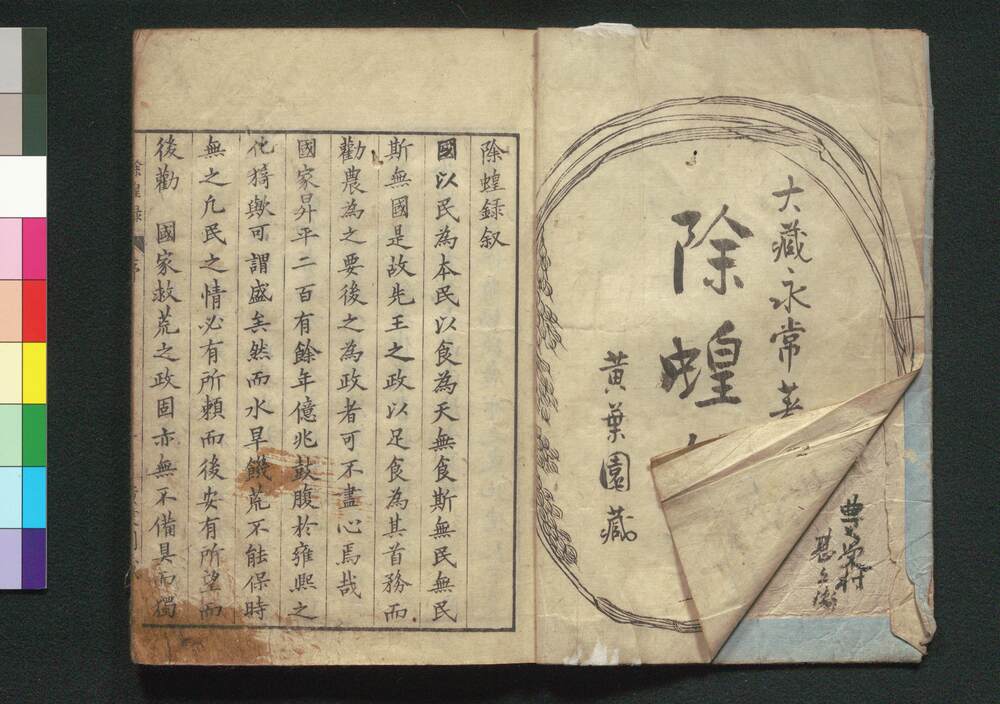 大藏永常著
除蝗
黄葉園藏
除蝗録叙
國以民為本民以食為天無食斯無民無民
斯無國是故先王之政以足食為其首務而
勸農為之要後之為政者可不盡心焉哉
國家昇平二百有餘年億兆鼓腹於雍熙之
化猗歟可謂盛矣然而水旱饑荒不能保時
無之凡民之情必有所頼而後安有所望而
後勸　國家救荒之政固亦無不備具而獨
除蝗録